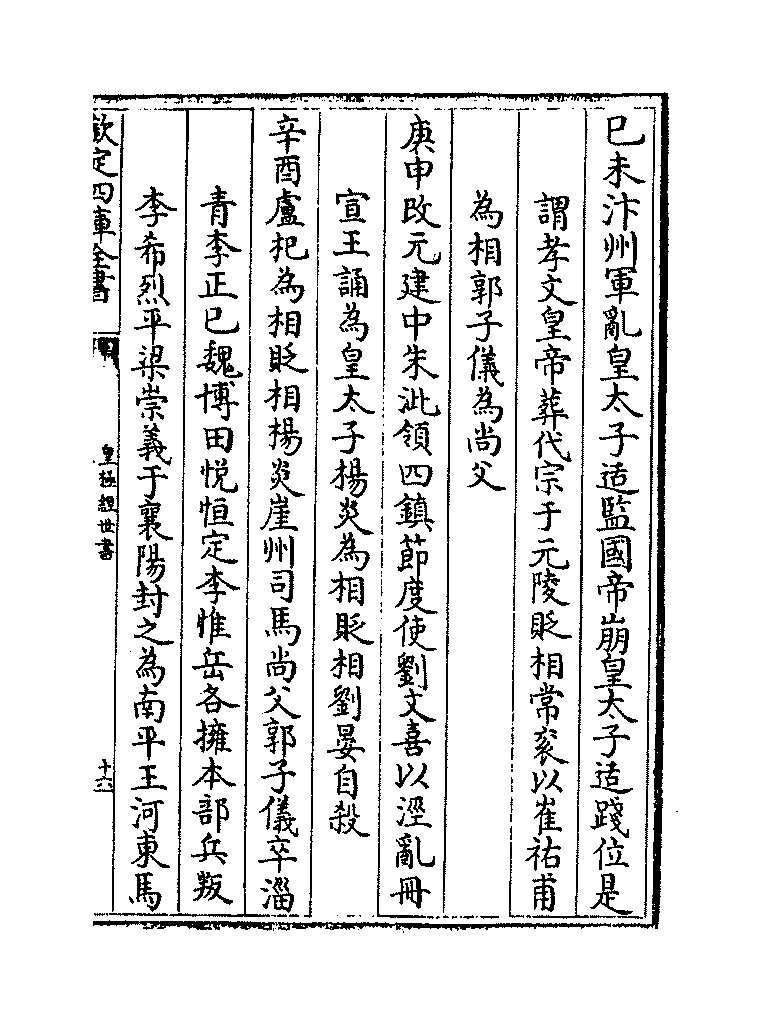 已未汴州軍亂皇太子适監國帝崩皇太子适踐位是
謂孝文皇帝葬代宗于元陵貶相常衮以崔祐甫
為相郭子儀為尚父
庚申改元建中朱泚領四鎮節度使劉文喜以涇亂冊
宣王誦為皇太子楊炎為相貶相劉晏自殺
辛酉盧杞為相貶相楊炎崖州司馬尚父郭子儀卒淄
青李正已魏博田悅恒定李惟岳各擁本部兵叛
李希烈平梁崇義于襄陽封之為南平王河東馬
欽定四庫全書
皇極經世書
十六